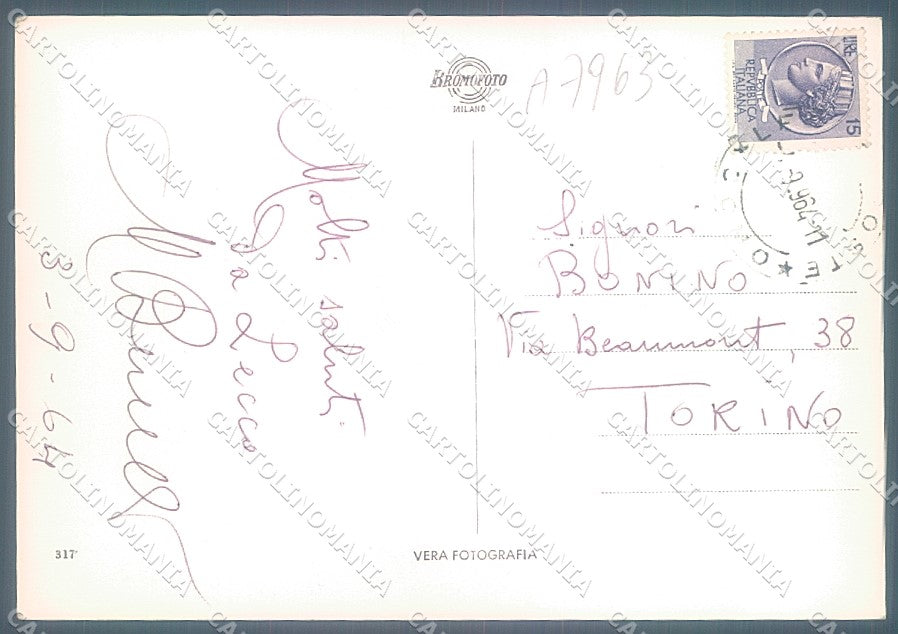 BROMOFOTO
MILANO
A7963
LIRE 15
REPVBBLICA
ITALIANA
Signori
BONINO
Via Beaumont, 38
TORINO
Molti saluti
da Lecco
3-9-64
317
VERA FOTOGRAFIA
CARTOLINOMANIA